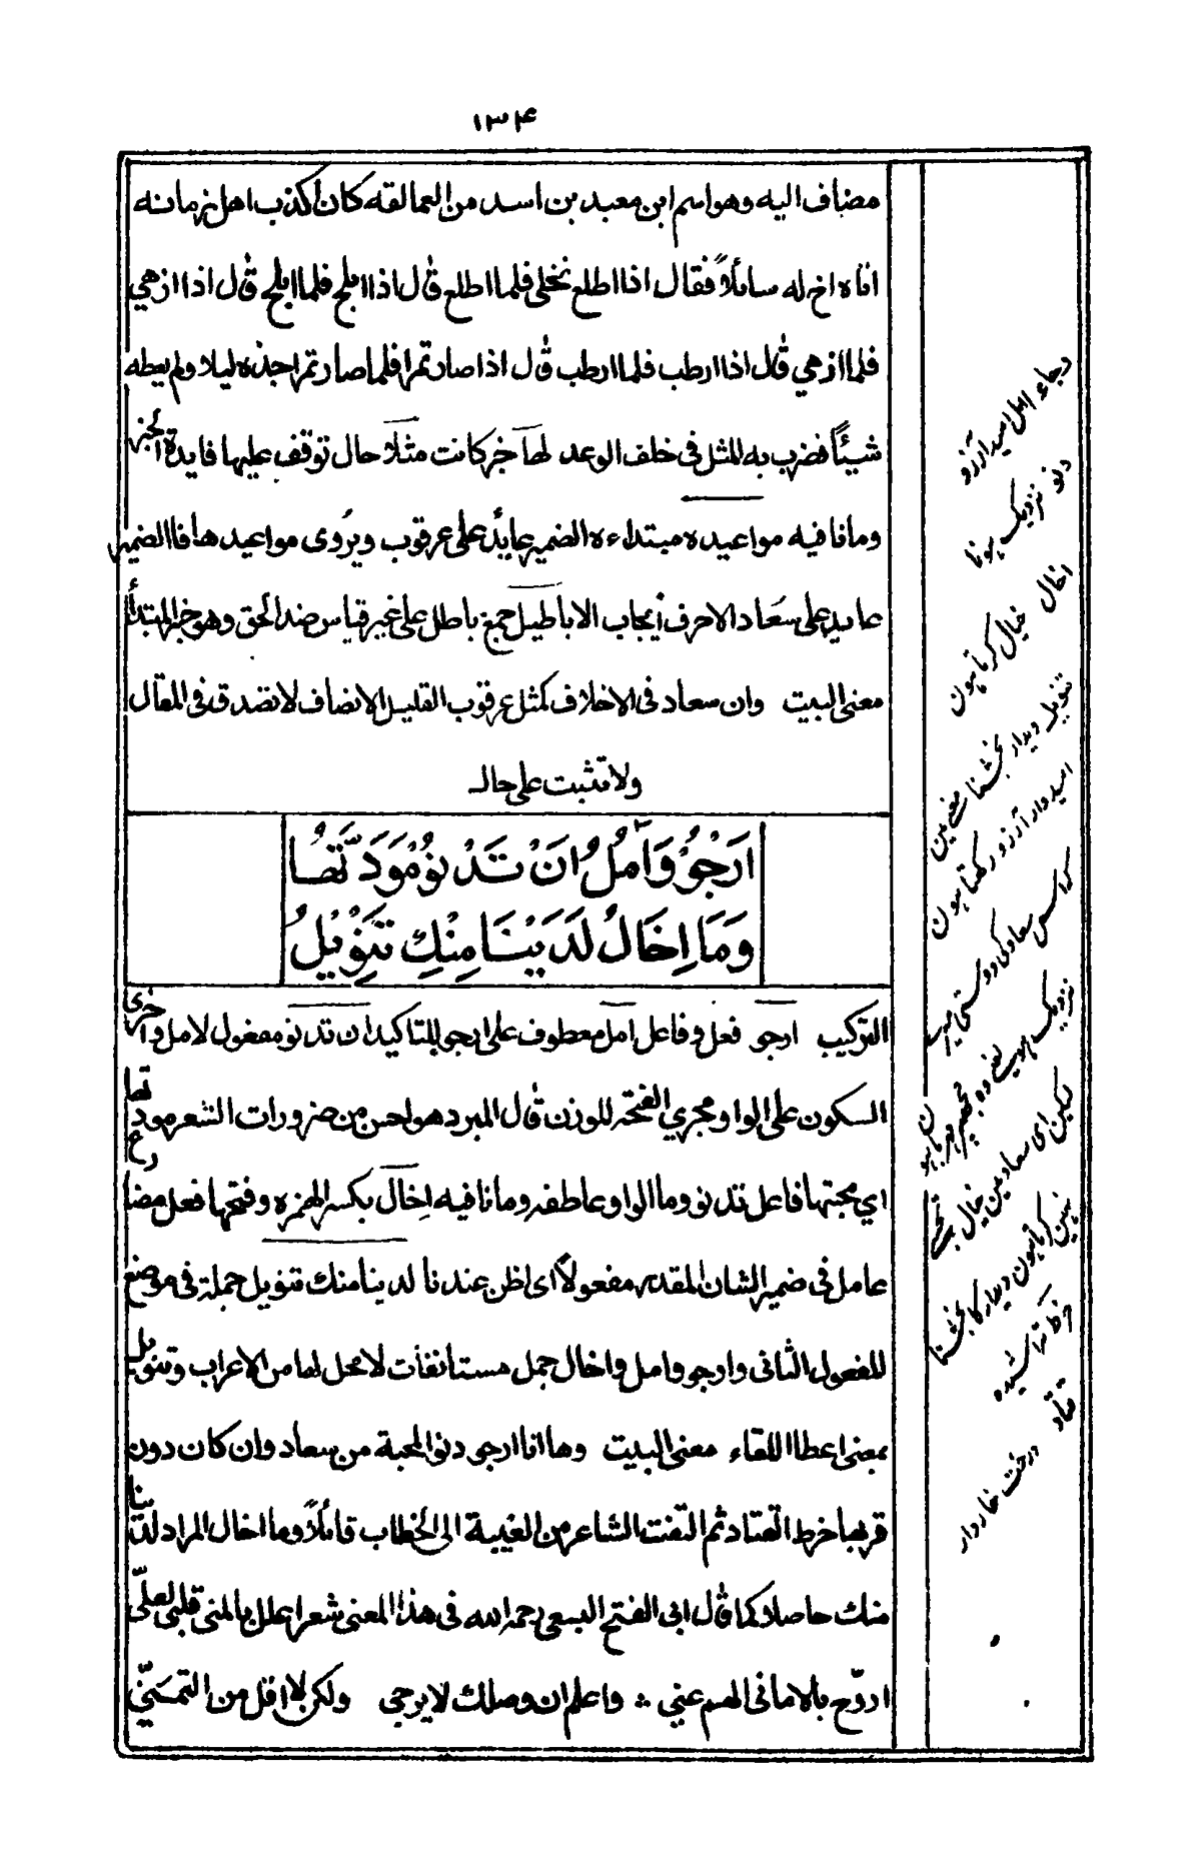 ۱۳۴
مضاف اليه وهو اسم ابن معبد بن اسد من العمالقه كان اكذب اهل زمانه
اتاه اخ له سائلاً فقال اذا اطلع نخلى فلما اطلع قال اذا ابلح فلما ابلح قال اذا ازهي
فلما ازهي قال اذا ارطب فلما ارطب قال اذا صار تمرا فلما صار تمرا جذه ليلا ولم يعطه
شيئاً فضرب به المثل فى خلف الوعد لها خبر كانت مثلا حال توقف عليها فايدة الخبر
وما نافيه مواعيده مبتداء ه الضمير عايد على عرقوب ويُروى مواعيدها فا الضمير
عايد على سعاد الا حرف ايجاب الاباطيل جمع باطل على غير قياس ضد الحق وهو خبر المبتدأ
معنى البيت وان سعاد فى الاخلاف كمثل عرقوب القليل الانصاف لا تصدق فى المقال
ولا تثبت على حال
اَرْجُوْ وَاٰمُلُ اَنْ تَدْنُوْ مَوَدَّتُهَا
وَمَا اِخَالُ لَدَيْنَا مِنْكِ تَنْوِيْلُ
التركيب ارجو فعل وفاعل امل معطوف على ارجو للتاكيد ان تدنو مفعول لامل واجرى
السكون على الواو مجري الفتحة للوزن قال المبرد هو احسن من ضرورات الشعر مودتها
اي محبتها فاعل تدنو وما الواو عاطفه وما نافيه اِخال بكسر الهمزه وفتحها فعل مضارع
عامل فى ضمير الشان المقدر مفعولاً اى اظن عندنا لدينا منك تنويل جملة فى موضع
المفعول الثانى وارجو وامل واخال جمل مستانفات لا محل لها من الاعراب وتنويل
بمعنى اعطا اللقاء معنى البيت وها انا ارجو دنو المحبة من سعاد وان كان دون
قربها خرط القتاد ثم التفت الشاعر من الغيبة الى الخطاب قائلاً وما اخال المراد لدينا
منك حاصلا كما قال ابى الفتح البسعى رحمه الله فى هذا المعنى شعرا علل بالمنى قلبى لعلّى
اروّح بالامانى الهم عني ؞ واعلم ان وصلك لا يرجي ولكن لا اقل من التمنّي
رجاء امل اميد آرزو
دنو نزديك ہونا
اخال خيال كرتا ہون
تنويل ديدار بخشنا معنے مين
اميدوار آرزو ركھتا ہون
كہ اس سعاد كى دوستى ميرے
نزديك ہووے يعنے وہ مجھپر مہربان ہو
ليكن اى سعاد مين خيال تجھے
نہين كرتا ہون ديدار كا بخشنا
خرط تراشيده
قتاد درخت خاردار